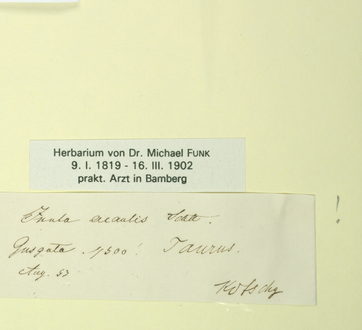 Herbarium von Dr. Michael FUNK
9. I. 1819 - 16. III. 1902
prakt. Arzt in Bamberg
Inula acaulis Schott.
!
Gusguta . 7500'. Taurus.
Aug. 53
Kotschy